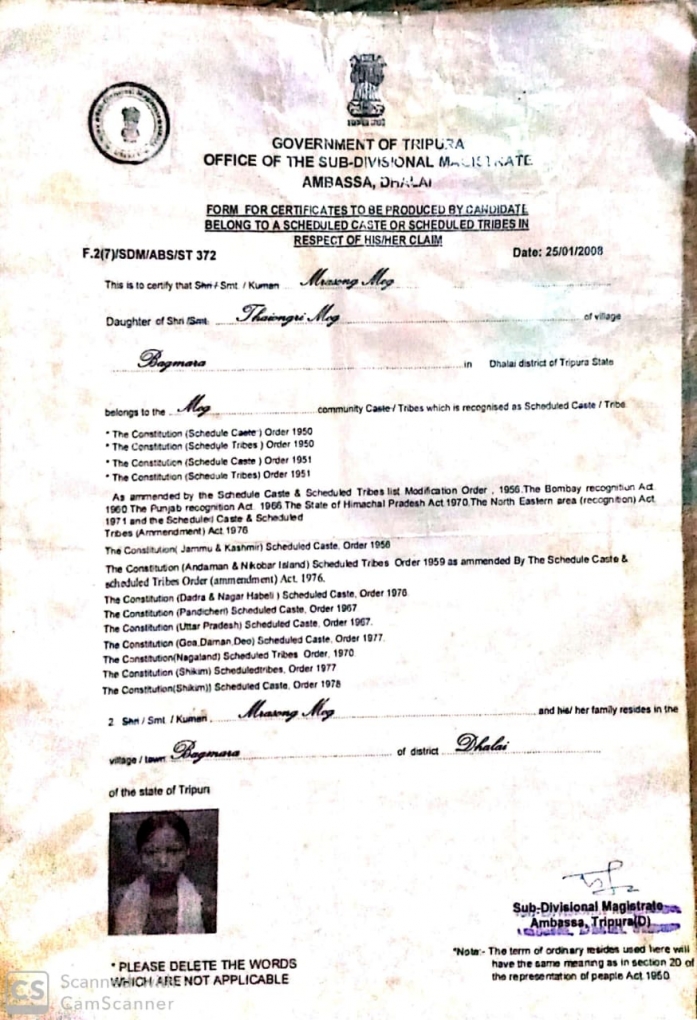 GOVERNMENT OF TRIPURA
OFFICE OF THE SUB-DIVISIONAL MAGISTRATE
AMBASSA, DHALAI
FORM FOR CERTIFICATES TO BE PRODUCED BY CANDIDATE
BELONG TO A SCHEDULED CASTE OR SCHEDULED TRIBES IN
RESPECT OF HIS/HER CLAIM
F.2(7)/SDM/ABS/ST 372 Date: 25/01/2008
This is to certify that Shri / Smt / Kumari Mrasong Mog
Daughter of Shri /Smt. Thaiongri Mog of village
Bagmara in Dhalai district of Tripura State
belongs to the Mog community Caste / Tribes which is recognised as Scheduled Caste / Tribe
* The Constitution (Schedule Caste ) Order 1950
* The Constitution (Schedule Tribes ) Order 1950
* The Constitution (Schedule Caste ) Order 1951
* The Constitution (Schedule Tribes) Order 1951
As ammended by the Schedule Caste & Scheduled Tribes list Modification Order , 1956.The Bombay recognition Act
1960.The Punjab recognition Act. 1966.The State of Himachal Pradesh Act 1970.The North Eastern area (recognition) Act
1971 and the Scheduled Caste & Scheduled
Tribes (Ammendment) Act 1976
The Constitution( Jammu & Kashmir) Scheduled Caste, Order 1956
The Constitution (Andaman & Nikobar Island) Scheduled Tribes Order 1959 as ammended By The Schedule Caste &
scheduled Tribes Order (ammendment) Act. 1976.
The Constitution (Dadra & Nagar Habeli ) Scheduled Caste, Order 1976
The Constitution (Pandicheri) Scheduled Caste, Order 1967
The Constitution (Uttar Pradesh) Scheduled Caste, Order 1967.
The Constitution (Goa,Daman,Deo) Scheduled Caste, Order 1977.
The Constitution(Nagaland) Scheduled Tribes Order, 1970
The Constitution (Shikim) Scheduledtribes, Order 1977
The Constitution(Shikim)) Scheduled Caste, Order 1978
2 Shri / Smt. / Kumari . Mrasong Mog and his/ her family resides in the
village / town Bagmara of district Dhalai
of the state of Tripuri
Sub-Divisional Magistrate
Ambassa, Tripura(D)
*Note:- The term of ordinary resides used here will
have the same meaning as in section 20 of
the representation of people Act 1950
* PLEASE DELETE THE WORDS
WHICH ARE NOT APPLICABLE
CS Scanned
CamScanner